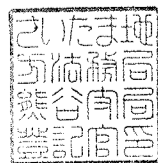 さいたま地
方法務局
熊谷支局
登記官印